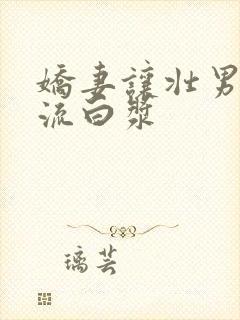 嬌妻讓壯男
流白漿
璃芸